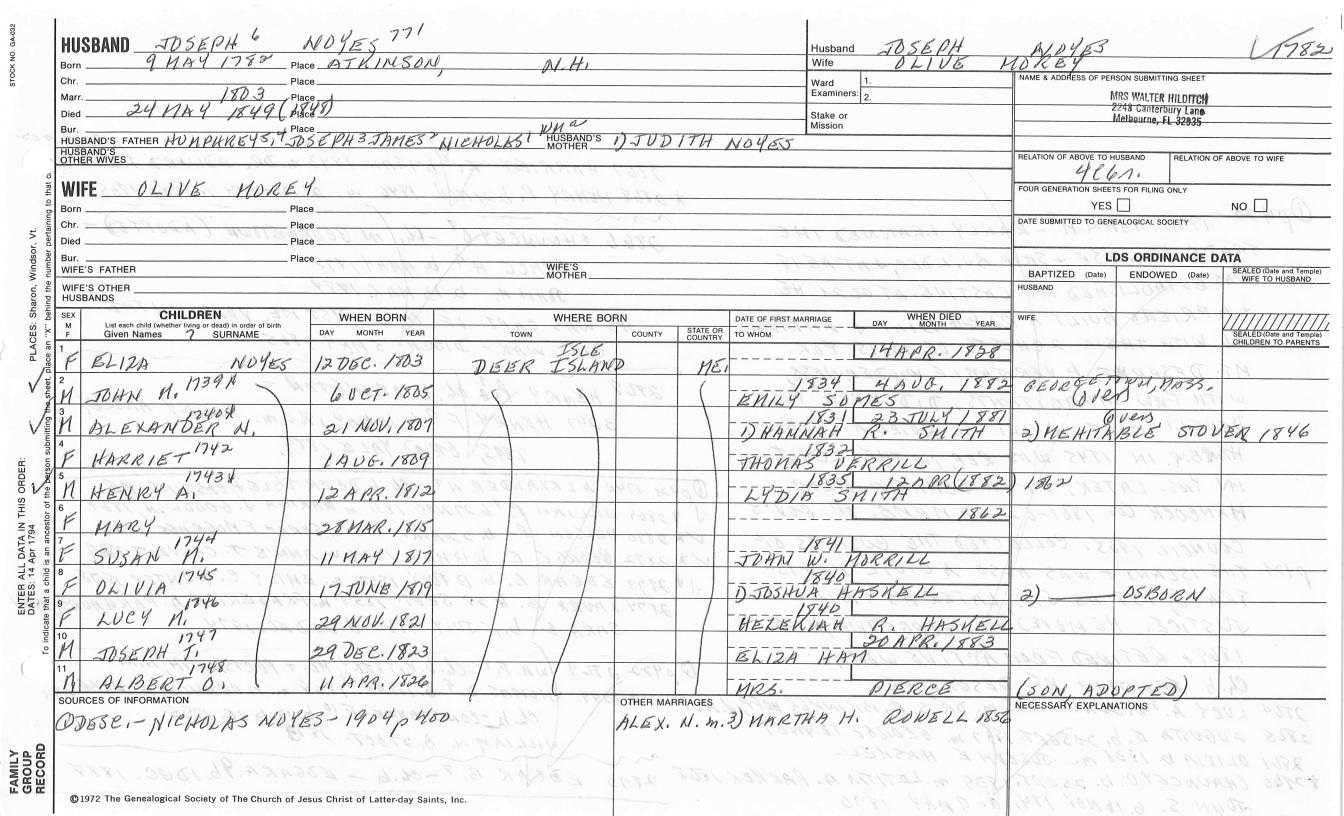 STOCK NO. GA-032
HUSBAND JOSEPH 6 NOYES 771
Born 9 MAY 1782 Place ATKINSON, N.H.
Chr. Place
Marr. 1803 Place
Died 24 MAY 1849 (1848) Place
Bur. Place
HUSBAND'S FATHER HUMPHREY5, 4 JOSEPH3 JAMES2 NICHOLAS1 HUSBAND'S MOTHER 1) JUDITH NOYES
HUSBAND'S OTHER WIVES
Husband JOSEPH NOYES 1782
Wife OLIVE MOREY
Ward Examiners: 1.
2.
Stake or Mission
NAME & ADDRESS OF PERSON SUBMITTING SHEET
MRS WALTER HILDITCH
2248 Canterbury Lane
Melbourne, FL 32935
RELATION OF ABOVE TO HUSBAND RELATION OF ABOVE TO WIFE
FOUR GENERATION SHEETS FOR FILING ONLY
YES NO
DATE SUBMITTED TO GENEALOGICAL SOCIETY
WIFE OLIVE MOREY
Born Place
Chr. Place
Died Place
Bur. Place
WIFE'S FATHER WIFE'S MOTHER
WIFE'S OTHER HUSBANDS
LDS ORDINANCE DATA
BAPTIZED (Date) ENDOWED (Date) SEALED (Date and Temple) WIFE TO HUSBAND
HUSBAND
WIFE
SEALED (Date and Temple) CHILDREN TO PARENTS
SEX M F
CHILDREN
List each child (whether living or dead) in order of birth
Given Names 7 SURNAME
WHEN BORN
DAY MONTH YEAR
WHERE BORN
TOWN COUNTY STATE OR COUNTRY
DATE OF FIRST MARRIAGE
TO WHOM
WHEN DIED
DAY MONTH YEAR
1 F ELIZA NOYES 12 DEC. 1803 DEER ISLAND ISLE ME. 14 APR. 1828
2 M JOHN M. 1739X 6 OCT. 1805 1834 4 AUG. 1882 GEORGETOWN, MASS.
EMILY SOMES
3 M ALEXANDER N. 1740X 21 NOV. 1807 1831 23 JULY 1881
1) HANNAH R. SMITH 2) MEHITABLE STOVER 1846
4 F HARRIET 1742 1 AUG. 1809 1832
THOMAS VERRILL
5 M HENRY A. 1743X 12 APR. 1812 1835 12 APR (1882) 1862
LYDIA SMITH
6 F MARY 28 MAR. 1815 1862
7 F SUSAN M. 1744 11 MAY 1817 1841
JOHN W. MORRILL
8 F OLIVIA 1745 17 JUNE 1819 1840
1) JOSHUA HASKELL 2) OSBORN
9 F LUCY M. 1746 29 NOV. 1821 1840
HEZEKIAH R. HASKELL
10 M JOSEPH T. 1747 29 DEC. 1823 20 APR. 1883
ELIZA HAM
11 M ALBERT O. 1748 11 APR. 1826
MRS. PIERCE (SON, ADOPTED)
SOURCES OF INFORMATION
① DESC. - NICHOLAS NOYES - 1904 p 400
OTHER MARRIAGES
ALEX. N. m. 3) MARTHA H. ROWELL 1856
NECESSARY EXPLANATIONS
©1972 The Genealogical Society of The Church of Jesus Christ of Latter-day Saints, Inc.
FAMILY GROUP RECORD
ENTER ALL DATA IN THIS ORDER:
DATES: 14 Apr 1794
PLACES: Sharon, Windsor, Vt.
To indicate that a child is an ancestor of the person submitting the sheet, place an "X" behind the number pertaining to that